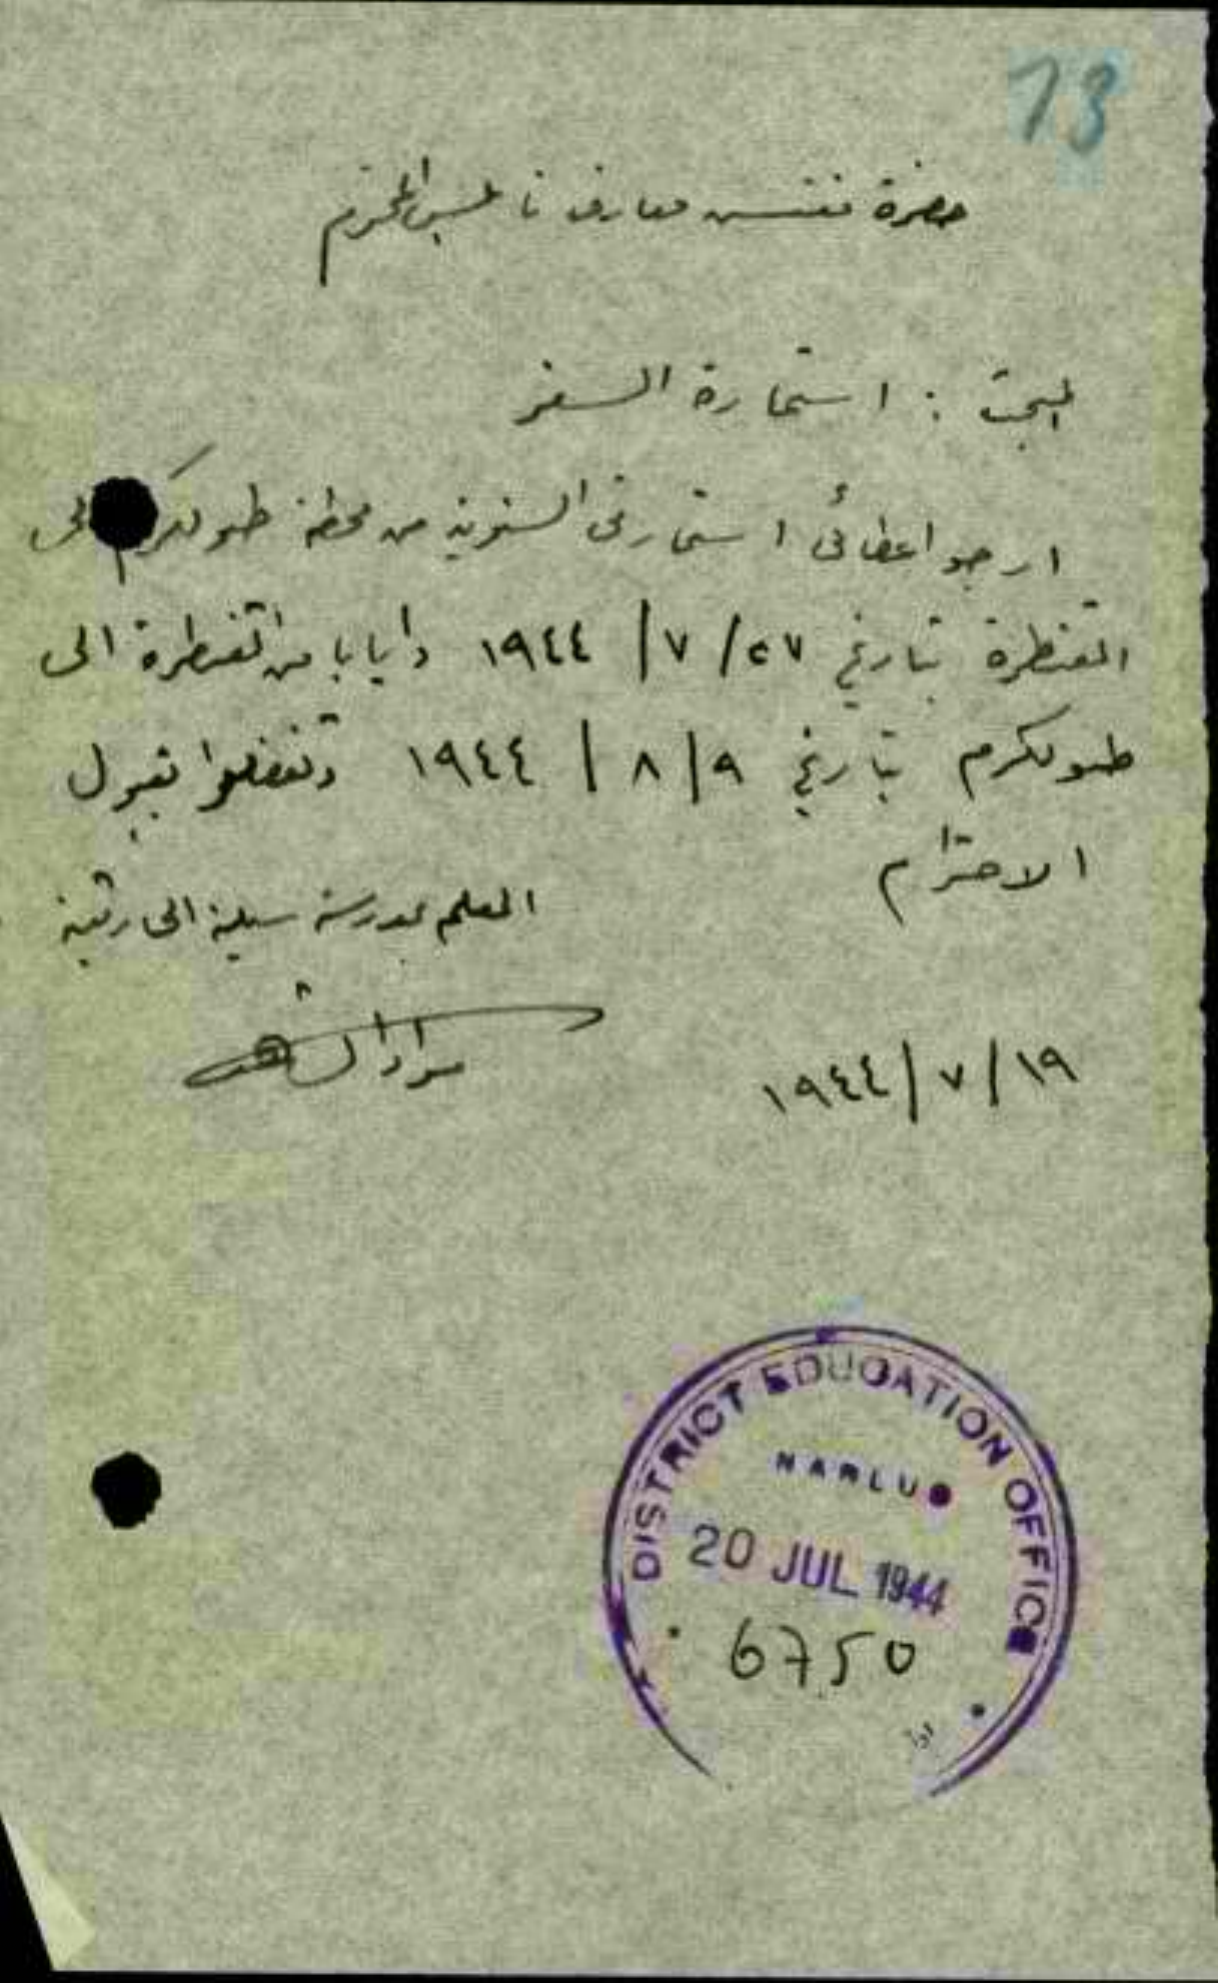 13
حضرة مفتش معارف نابلس المحترم
المبحث : استمارة السفر
ارجو اعطائي استمارتي السنوية من محطة طولكرم الى
القنطرة بتاريخ ٢٧/ ٧/ ١٩٤٤ وايابا من القنطرة الى
طولكرم بتاريخ ٩/ ٨ / ١٩٤٤ وتفضلوا بقبول
الاحترام
المعلم بمدرسة سيلة الحارثية
١٩/ ٧/ ١٩٤٤
DISTRICT EDUCATION OFFICE
NABLUS
20 JUL 1944
6750